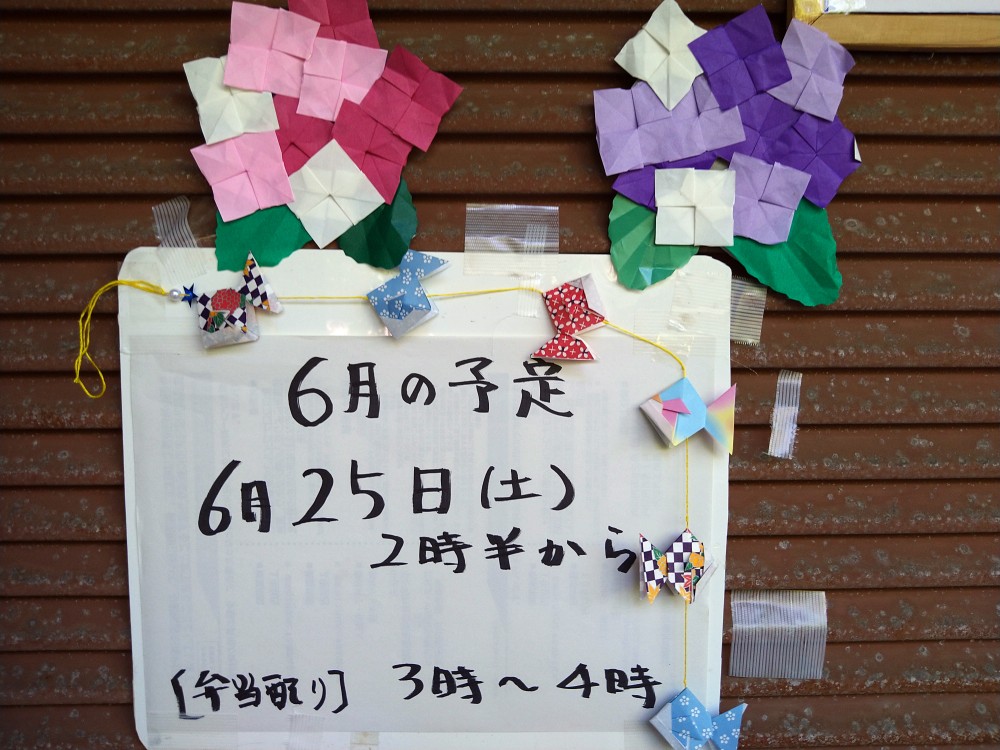 6月の予定
6月25日(土)
2時半から
[弁当配り] 3時〜4時